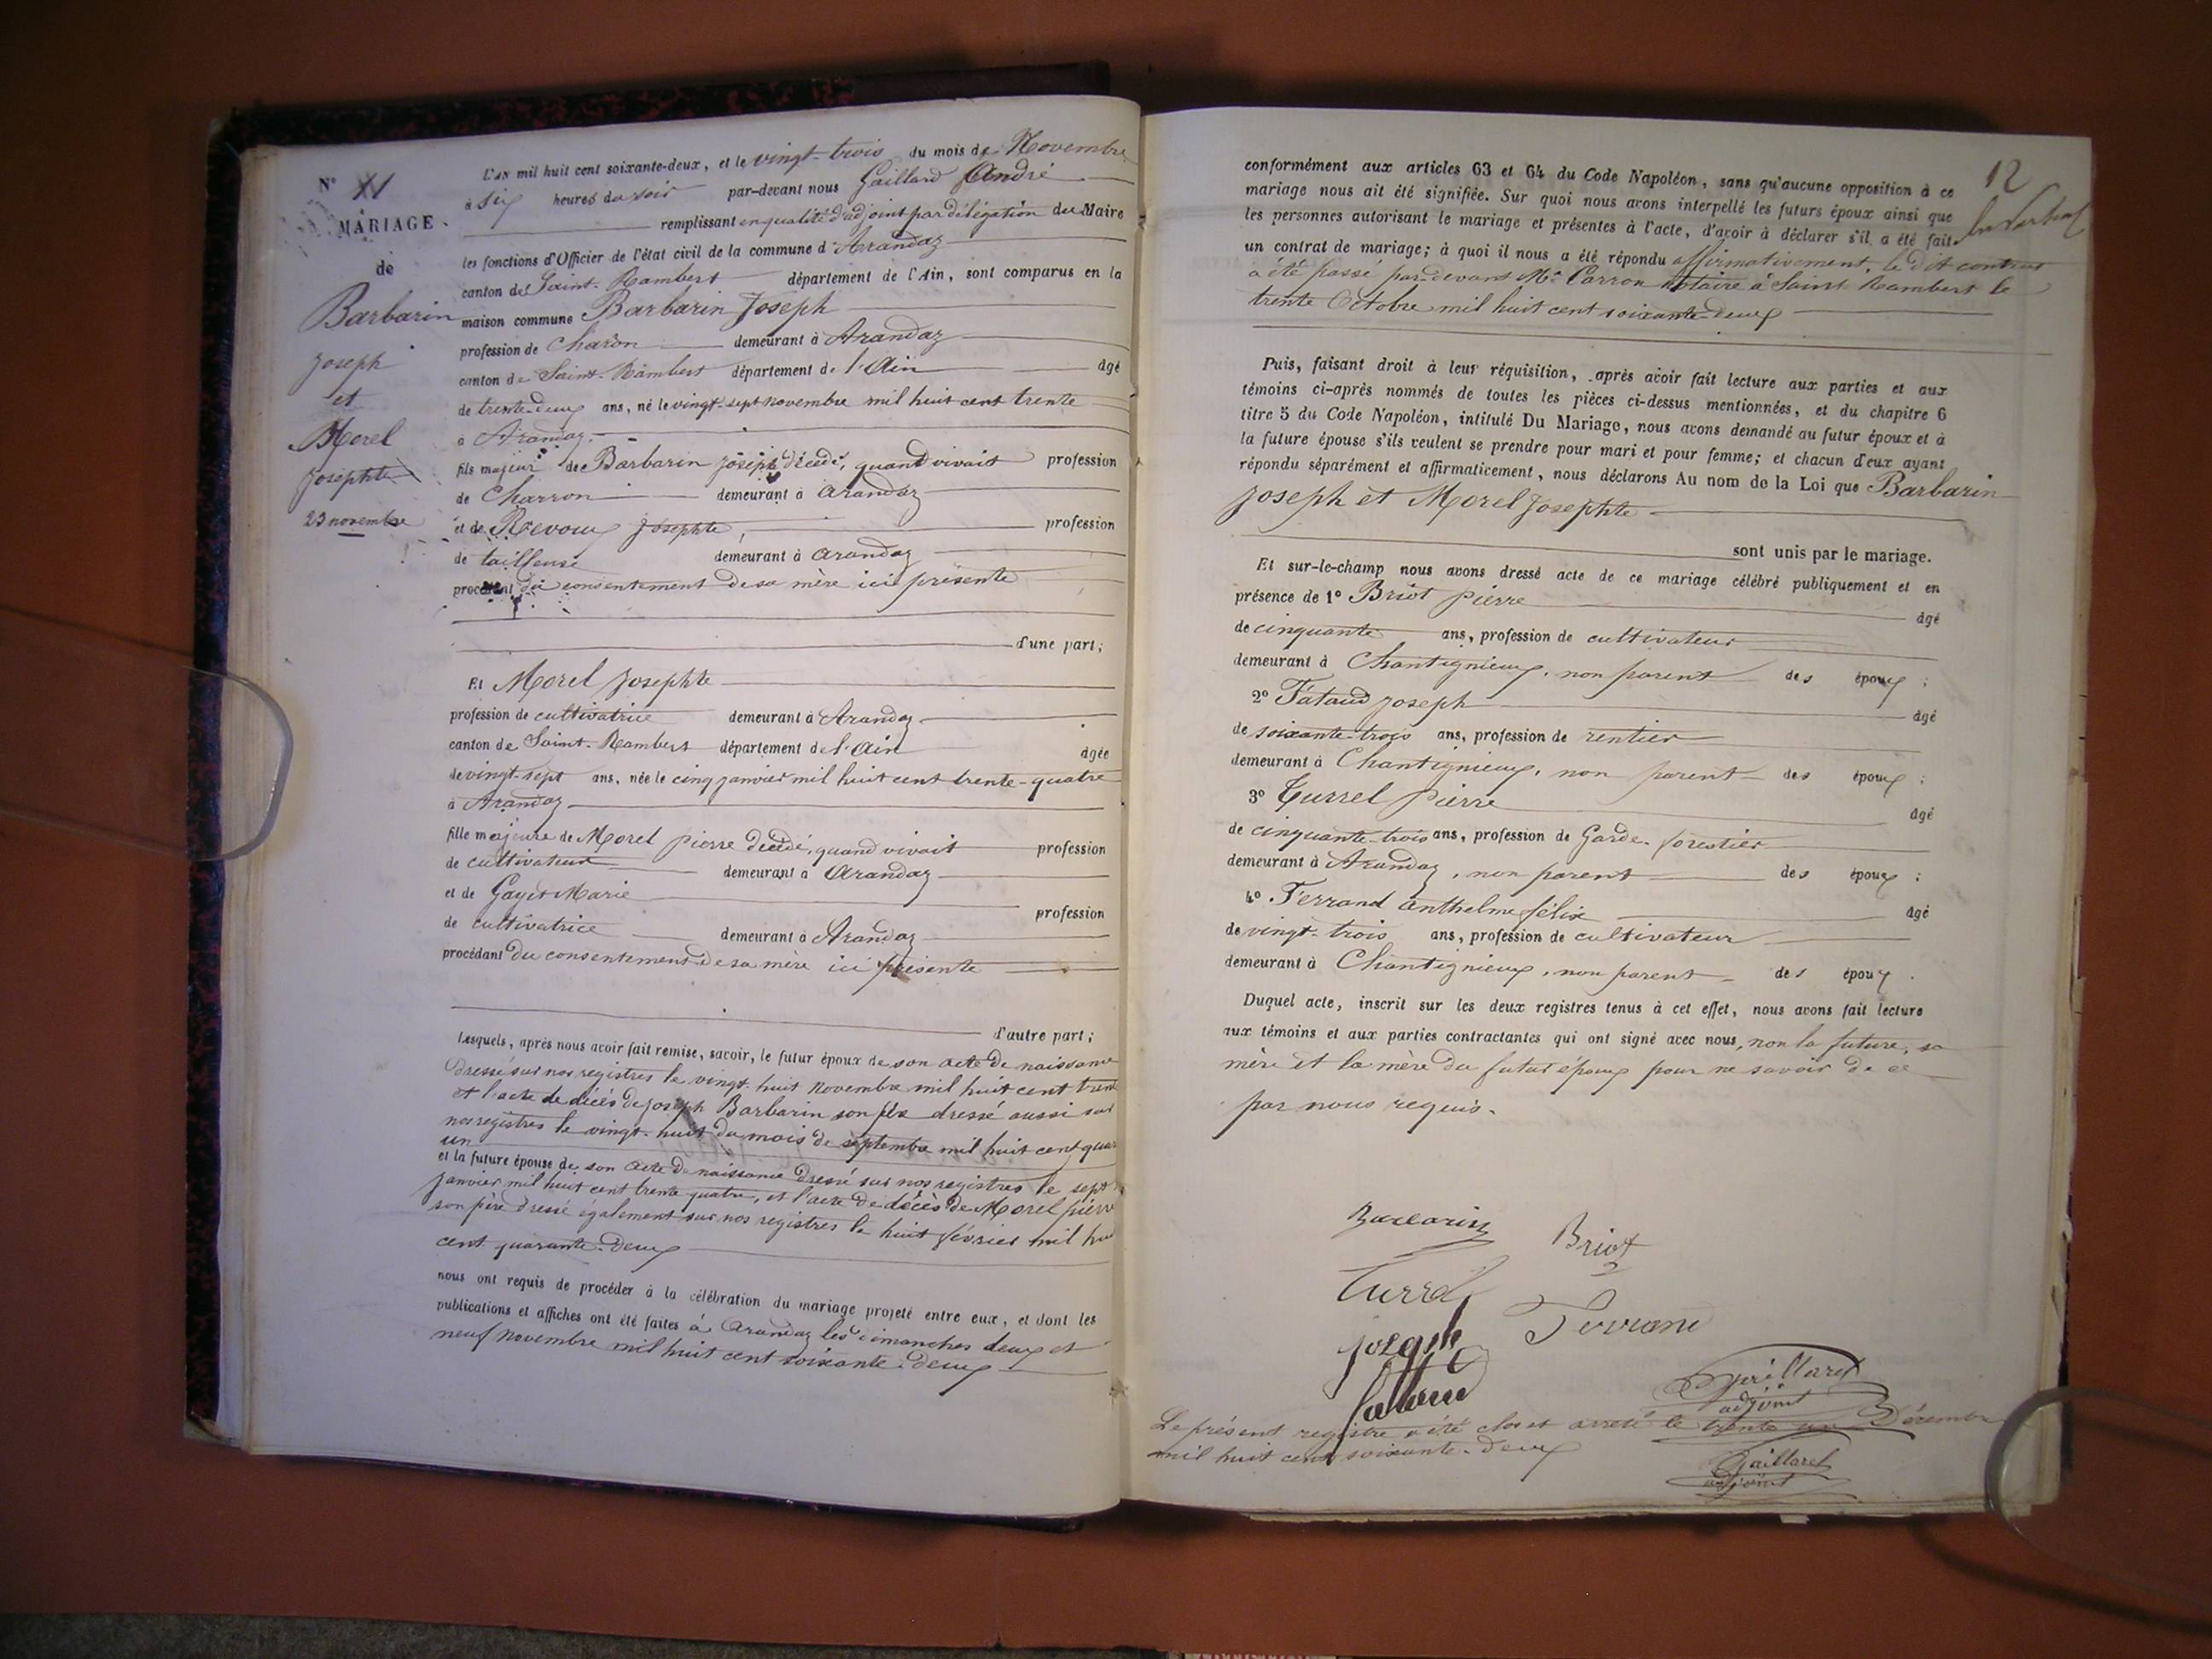 N° XI
MARIAGE
de
Barbarin
Joseph
et
Morel
Josephte
23 novembre
L'AN mil huit cent soixante-deux, et le vingt-trois du mois de Novembre
à six heures du soir par-devant nous Gaillard André
remplissant en qualité d'adjoint par délégation du Maire
les fonctions d'Officier de l'état civil de la commune d'Arandaz
canton de Saint-Rambert département de l'Ain, sont comparus en la
maison commune Barbarin Joseph
profession de Charon demeurant à Arandaz
canton de Saint-Rambert département de l'Ain âgé
de trente-deux ans, né le vingt-sept novembre mil huit cent trente
à Arandaz
fils majeur de Barbarin Joseph décédé, quand vivait profession
de Charron demeurant à Arandaz
et de Revoux Josephte, profession
de tailleuse demeurant à Arandaz
procédant du consentement de sa mère ici présente
d'une part;
Et Morel Josephte
profession de cultivatrice demeurant à Arandaz
canton de Saint-Rambert département de l'Ain âgée
de vingt-sept ans, née le cinq janvier mil huit cent trente-quatre
à Arandaz
fille majeure de Morel Pierre décédé, quand vivait profession
de cultivateur demeurant à Arandaz
et de Gayet Marie profession
de cultivatrice demeurant à Arandaz
procédant du consentement de sa mère ici présente
d'autre part;
Lesquels, après nous avoir fait remise, savoir, le futur époux de son acte de naissance
dressé sur nos registres le vingt-huit novembre mil huit cent trente
et l'acte de décès de Joseph Barbarin son père dressé aussi sur
nos registres le vingt-huit du mois de septembre mil huit cent quar
un
et la future épouse de son acte de naissance dressé sur nos registres le sept
janvier mil huit cent trente quatre, et l'acte de décès de Morel pierre
son père dressé également sur nos registres le huit février mil hui
cent quarante-deux
nous ont requis de procéder à la célébration du mariage projeté entre eux, et dont les
publications et affiches ont été faites à Arandaz les dimanches deux et
neuf novembre mil huit cent soixante-deux
12
conformément aux articles 63 et 64 du Code Napoléon, sans qu'aucune opposition à ce
mariage nous ait été signifiée. Sur quoi nous avons interpellé les futurs époux ainsi que
les personnes autorisant le mariage et présentes à l'acte, d'avoir à déclarer s'il a été fait
un contrat de mariage; à quoi il nous a été répondu affirmativement, le dit contrat
a été passé par-devant Me Carron notaire à Saint Rambert le
trente Octobre mil huit cent soixante-deux
Puis, faisant droit à leur réquisition, après avoir fait lecture aux parties et aux
témoins ci-après nommés de toutes les pièces ci-dessus mentionnées, et du chapitre 6
titre 5 du Code Napoléon, intitulé Du Mariage, nous avons demandé au futur époux et à
la future épouse s'ils veulent se prendre pour mari et pour femme; et chacun d'eux ayant
répondu séparément et affirmativement, nous déclarons Au nom de la Loi que Barbarin
Joseph et Morel Josephte
sont unis par le mariage.
Et sur-le-champ nous avons dressé acte de ce mariage célébré publiquement et en
présence de 1° Briot Pierre âgé
de cinquante ans, profession de cultivateur
demeurant à Chantignieux, non parent des époux;
2° Fataud Joseph âgé
de soixante-trois ans, profession de rentier
demeurant à Chantignieux, non parent des époux;
3° Turrel Pierre âgé
de cinquante-trois ans, profession de Garde-forestier
demeurant à Arandaz, non parent des époux;
4° Ferrand Anthelme félix âgé
de vingt-trois ans, profession de cultivateur
demeurant à Chantignieux, non parent des époux.
Duquel acte, inscrit sur les deux registres tenus à cet effet, nous avons fait lecture
aux témoins et aux parties contractantes qui ont signé avec nous, non la future, sa
mère et la mère du futur époux pour ne savoir de ce
par nous requis.
Barbarin Briot
Turrel
Ferrand
joseph
fataud
Gaillard
adjoint
Le présent registre a été clos et arrêté le trente un Décembre
mil huit cent soixante-deux
Gaillard
adjoint